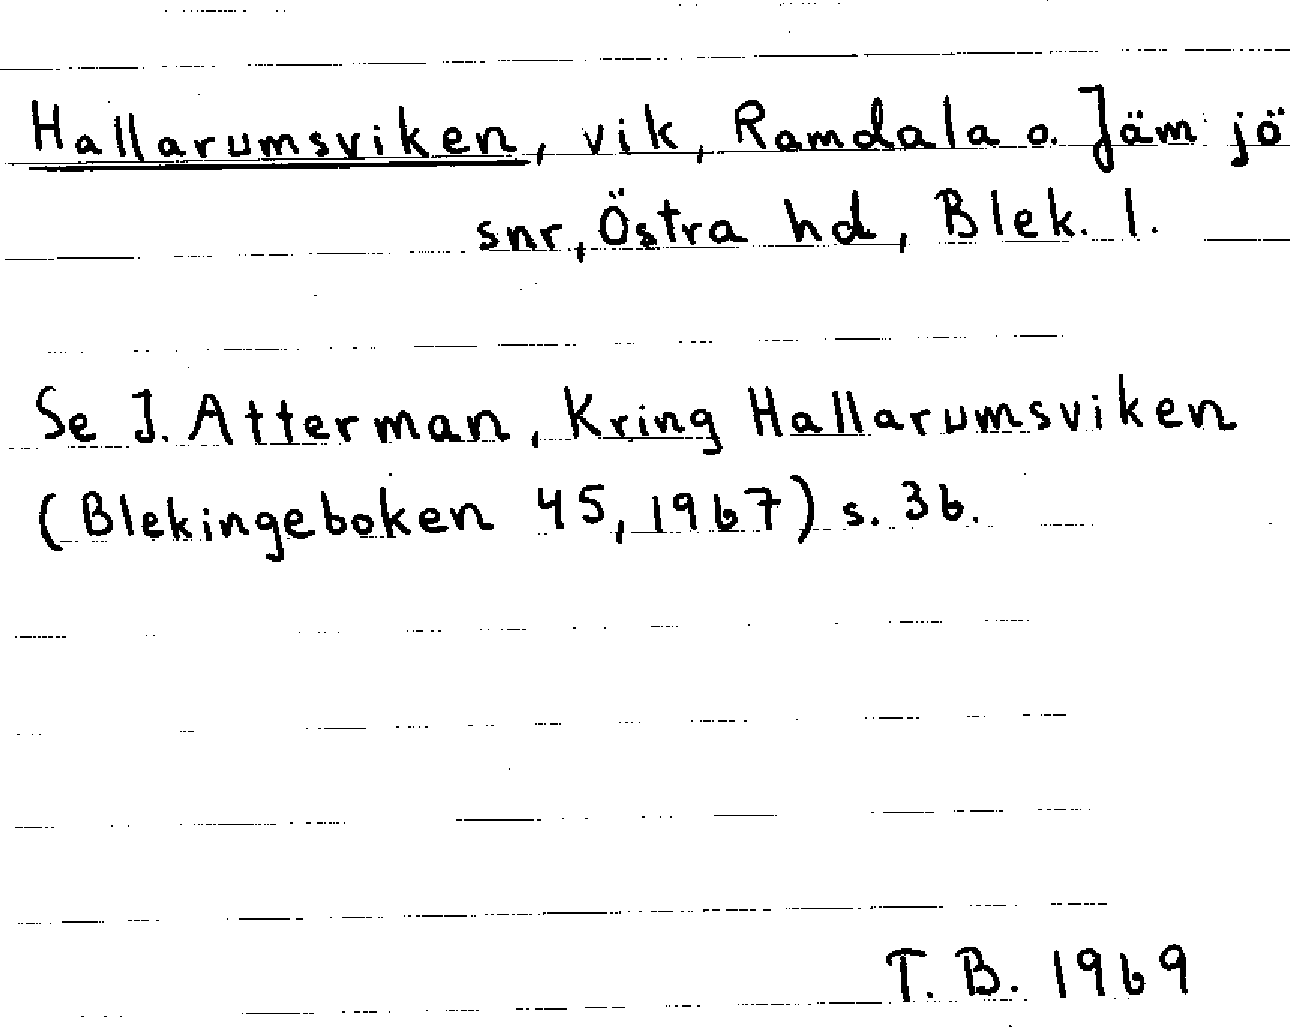 Hallarumsviken, vik, Ramdala o. Jämjö
snr, Östra hd, Blek. l.
Se I. Atterman, Kring Hallarumsviken
(Blekingeboken 45, 1967) s. 36.
T. B. 1969